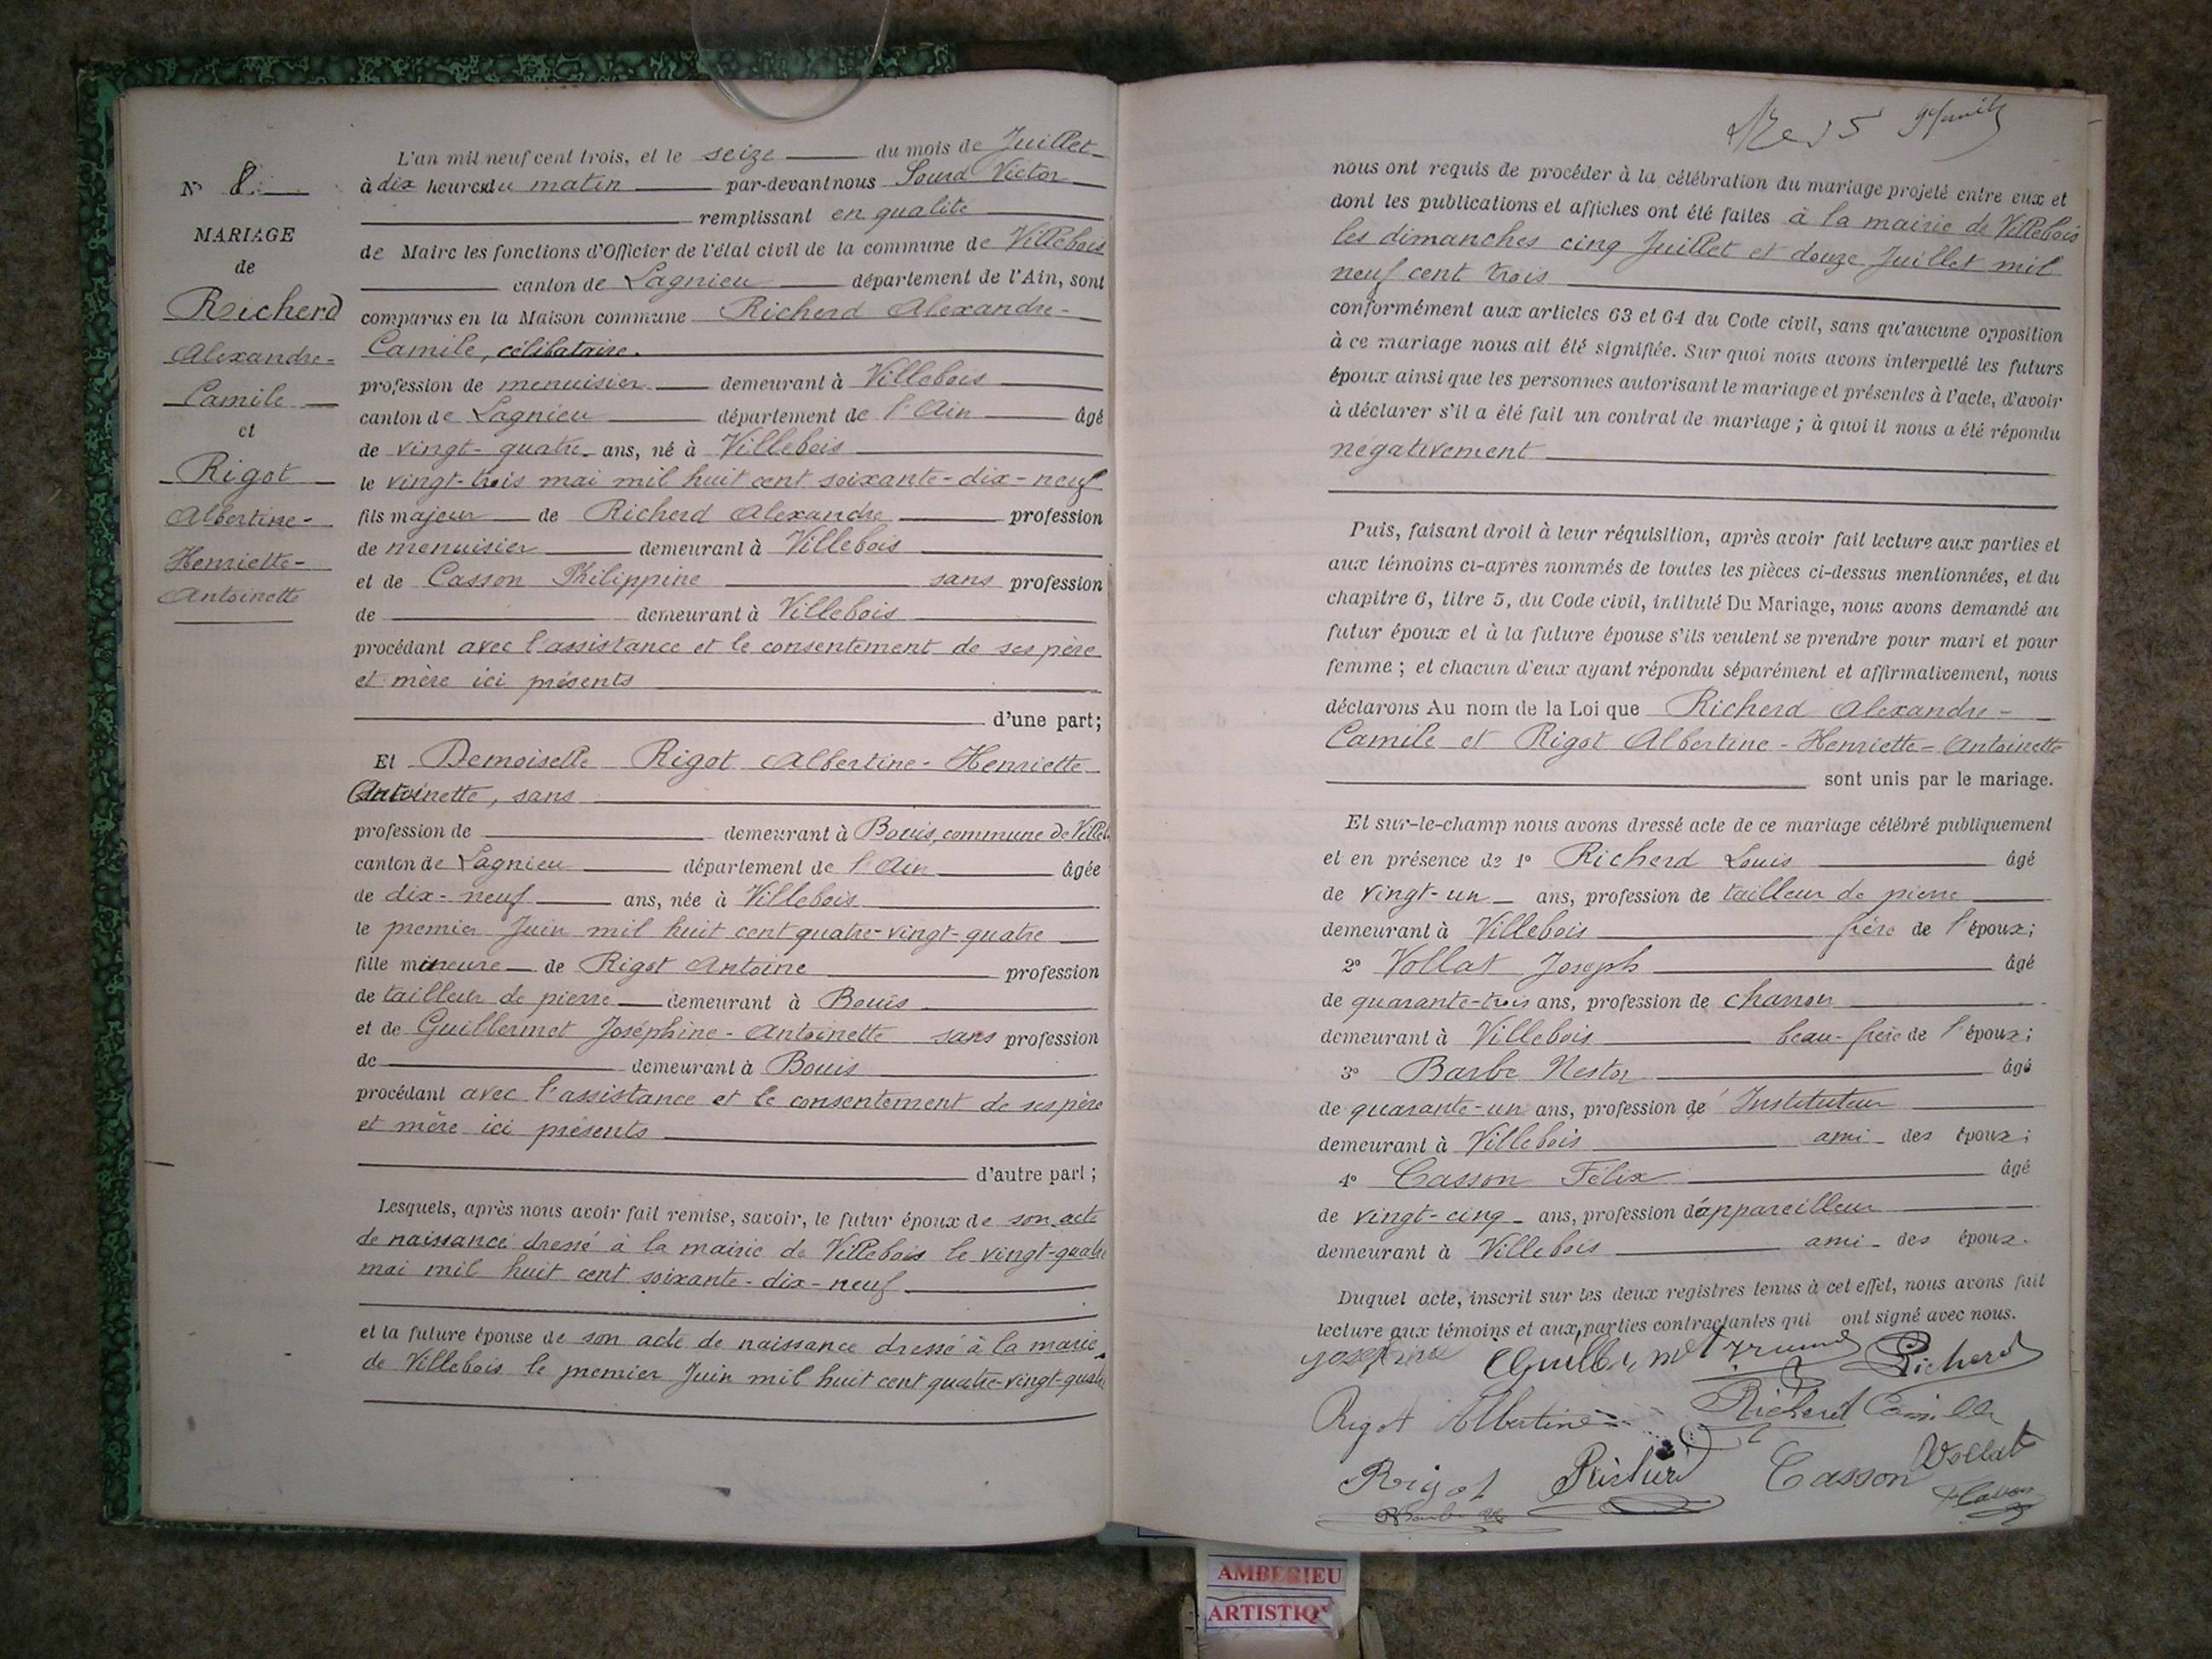 N° 8
MARIAGE
de
Richerd
Alexandre-
Camile
et
Rigot
Albertine-
Henriette-
Antoinette
L'an mil neuf cent trois, et le seize du mois de Juillet
à dix heures du matin par-devant nous Sourd Victor
remplissant en qualité
de Maire les fonctions d'Officier de l'état civil de la commune de Villebois
canton de Lagnieu département de l'Ain, sont
comparus en la Maison commune Richerd Alexandre-
Camile, célibataire.
profession de menuisier demeurant à Villebois
canton de Lagnieu département de l'Ain âgé
de vingt-quatre ans, né à Villebois
le vingt-trois mai mil huit cent soixante-dix-neuf
fils majeur de Richerd Alexandre profession
de menuisier demeurant à Villebois
et de Casson Philippine sans profession
de demeurant à Villebois
procédant avec l'assistance et le consentement de ses père
et mère ici présents
d'une part;
Et Demoiselle Rigot Albertine-Henriette
Antoinette, sans
profession de demeurant à Bouis, commune de Villeb.
canton de Lagnieu département de l'Ain âgée
de dix-neuf ans, née à Villebois
le premier Juin mil huit cent quatre-vingt-quatre
fille mineure de Rigot Antoine profession
de tailleur de pierre demeurant à Bouis
et de Guillermet Joséphine-Antoinette sans profession
de demeurant à Bouis
procédant avec l'assistance et le consentement de ses père
et mère ici présents
d'autre part;
Lesquels, après nous avoir fait remise, savoir, le futur époux de son acte
de naissance dressé à la mairie de Villebois le vingt-quatre
mai mil huit cent soixante-dix-neuf
et la future épouse de son acte de naissance dressé à la marie
de Villebois le premier Juin mil huit cent quatre-vingt-quatre
nous ont requis de procéder à la célébration du mariage projeté entre eux et
dont les publications et affiches ont été faites à la mairie de Villebois
les dimanches cinq Juillet et douze Juillet mil
neuf cent trois
conformément aux articles 63 et 64 du Code civil, sans qu'aucune opposition
à ce mariage nous ait été signifiée. Sur quoi nous avons interpellé les futurs
époux ainsi que les personnes autorisant le mariage et présentes à l'acte, d'avoir
à déclarer s'il a été fait un contrat de mariage; à quoi il nous a été répondu
négativement
Puis, faisant droit à leur réquisition, après avoir fait lecture aux parties et
aux témoins ci-après nommés de toutes les pièces ci-dessus mentionnées, et du
chapitre 6, titre 5, du Code civil, intitulé Du Mariage, nous avons demandé au
futur époux et à la future épouse s'ils veulent se prendre pour mari et pour
femme; et chacun d'eux ayant répondu séparément et affirmativement, nous
déclarons Au nom de la Loi que Richerd Alexandre-
Camile et Rigot Albertine-Henriette-Antoinette
sont unis par le mariage.
Et sur-le-champ nous avons dressé acte de ce mariage célébré publiquement
et en présence de 1° Richerd Louis âgé
de vingt-un ans, profession de tailleur de pierre
demeurant à Villebois frère de l'époux;
2° Vollat Joseph âgé
de quarante-trois ans, profession de charron
demeurant à Villebois beau-frère de l'époux;
3° Barbe Nestor âgé
de quarante-un ans, profession de Instituteur
demeurant à Villebois ami des époux;
4° Casson Félix âgé
de vingt-cinq ans, profession d'appareilleur
demeurant à Villebois ami des époux.
Duquel acte, inscrit sur les deux registres tenus à cet effet, nous avons fait
lecture aux témoins et aux parties contractantes qui ont signé avec nous.
Josephine Guillermet Richerd
Rigot Albertine Richerd Camille
Rigot Richerd Casson Vollat
AMBERIEU
ARTISTIQ